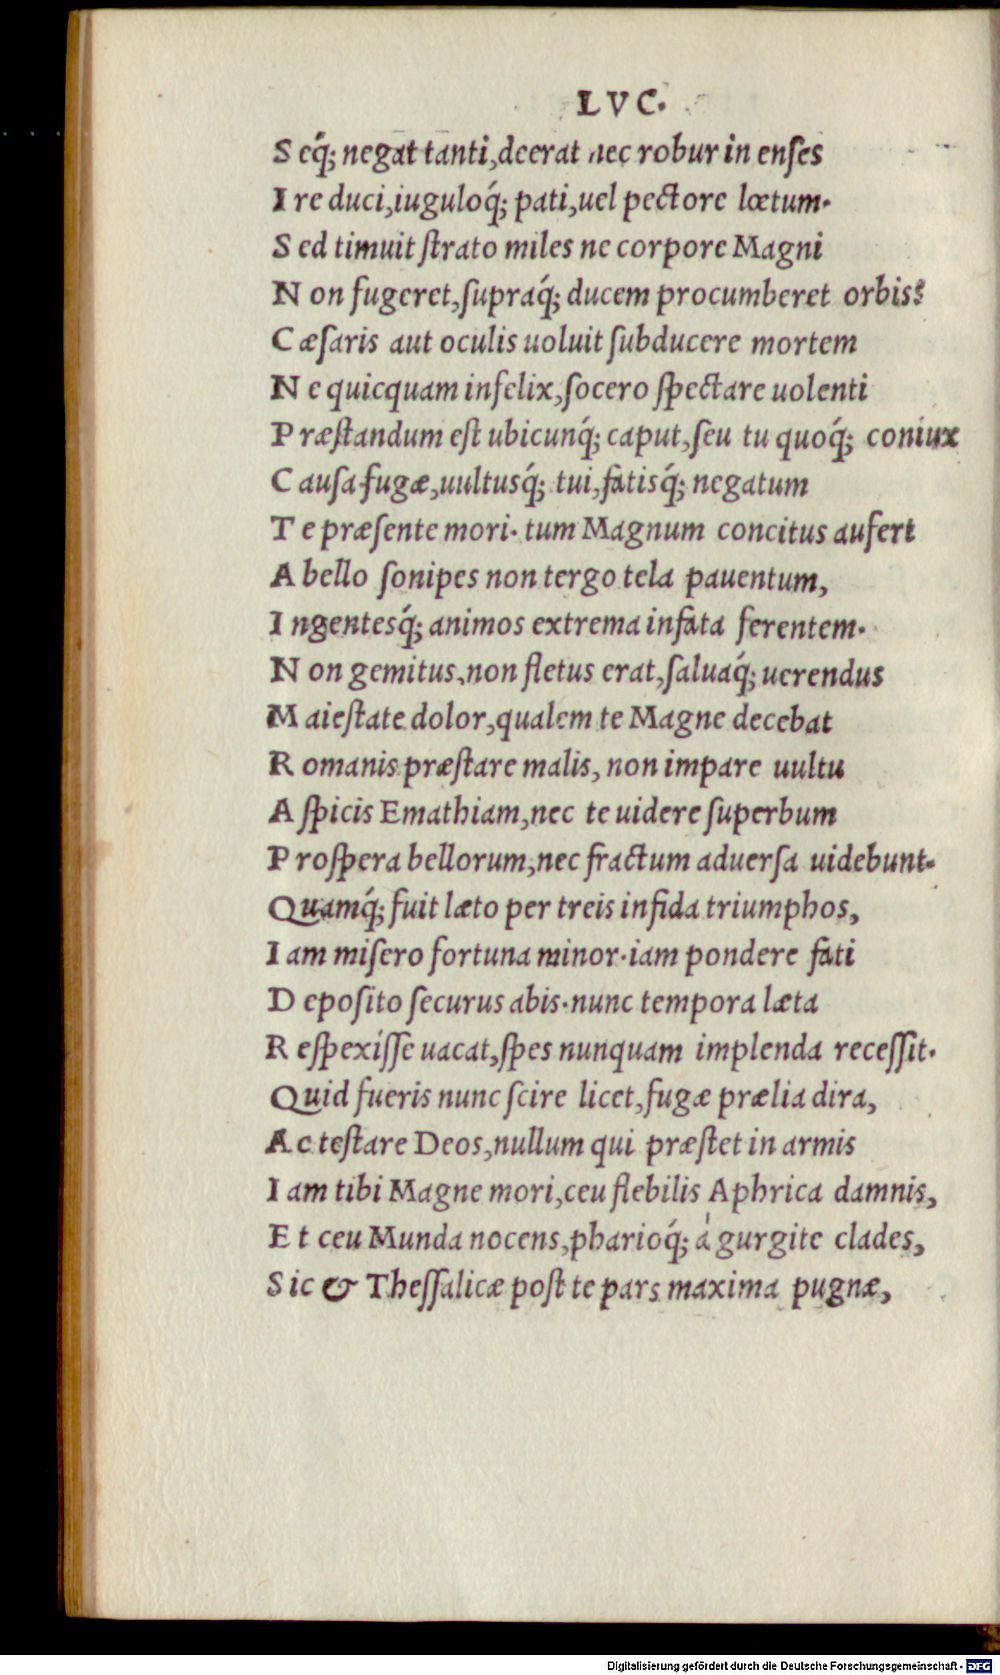 LVC.
S eq́; negat tanti, deerat nec robur in enses
I re duci, iuguloq́; pati, uel pectore lœtum.
S ed timuit ſtrato miles ne corpore Magni
N on fugeret, ſupraq́; ducem procumberet orbis:
C æſaris aut oculis uoluit ſubducere mortem
N e quicquam infelix, ſocero ſpectare uolenti
P ræſtandum eſt ubicunq́; caput, ſeu tu quoq́; coniux
C auſa fugæ, uultusq́; tui, fatisq́; negatum
T e præſente mori. tum Magnum concitus aufert
A bello ſonipes non tergo tela pauentum,
I ngentesq́; animos extrema in fata ferentem.
N on gemitus, non fletus erat, ſaluaq́; uerendus
M aieſtate dolor, qualem te Magne decebat
R omanis præſtare malis, non impare uultu
A ſpicis Emathiam, nec te uidere ſuperbum
P roſpera bellorum, nec fractum aduerſa uidebunt.
Quamq́; fuit læto per treis infida triumphos,
I am miſero fortuna minor. iam pondere fati
D epoſito ſecurus abis. nunc tempora læta
R eſpexiſſe uacat, ſpes nunquam implenda receſſit.
Quid fueris nunc ſcire licet, fugæ prælia dira,
A c teſtare Deos, nullum qui præſtet in armis
I am tibi Magne mori, ceu flebilis Aphrica damnis,
E t ceu Munda nocens, pharioq́; á gurgite clades,
S ic & Theſſalicæ poſt te pars maxima pugnæ,
Digitalisierung gefördert durch die Deutsche Forschungsgemeinschaft - DFG